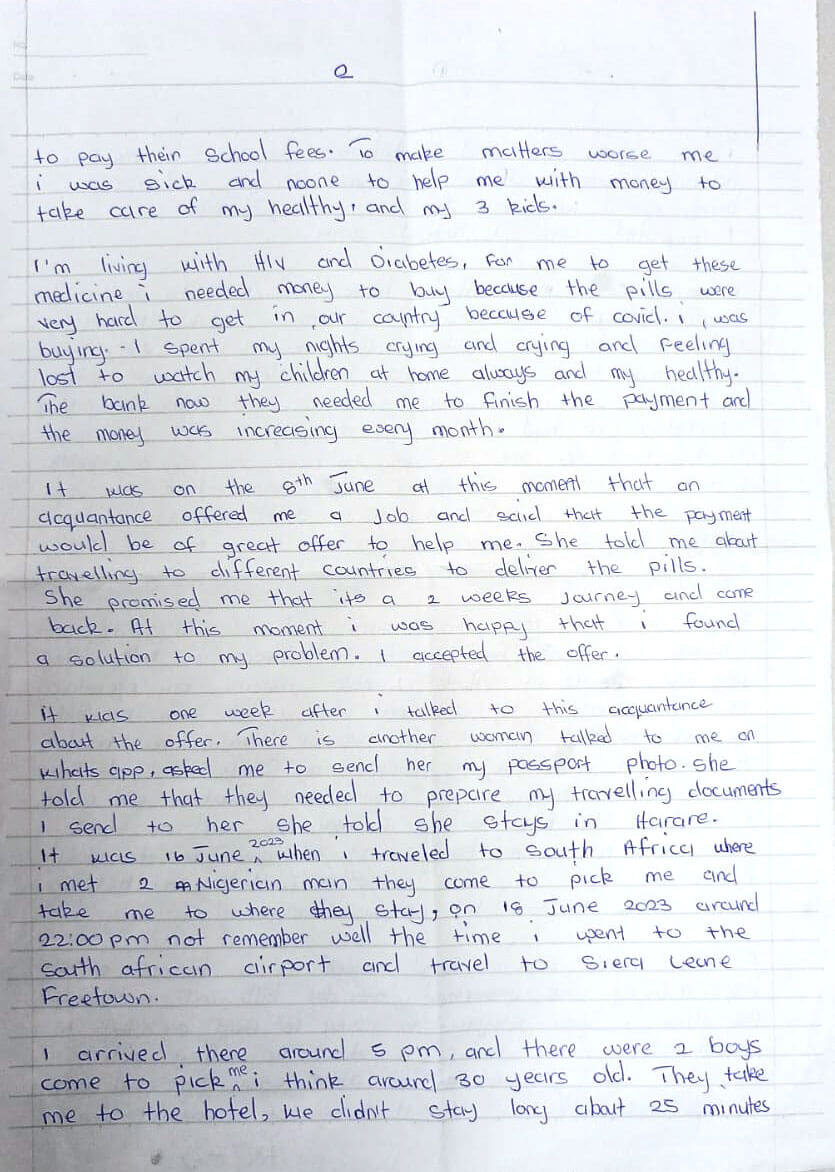 2
to pay their school fees. To make matters worse me
i was sick and noone to help me with money to
take care of my healthy, and my 3 kids.
I'm living with HIV and Diabetes, for me to get these
medicine i needed money to buy because the pills were
very hard to get in our country because of covid. i was
buying. I spent my nights crying and crying and feeling
lost to watch my children at home always and my healthy.
The bank now they needed me to finish the payment and
the money was increasing every month.
It was on the 8th June at this moment that an
acquantance offered me a job and said that the payment
would be of great offer to help me. She told me about
travelling to different countries to deliver the pills.
She promised me that its a 2 weeks journey and come
back. At this moment i was happy that i found
a solution to my problem. I accepted the offer.
it was one week after i talked to this acquantance
about the offer. There is another woman talked to me on
whats app, asked me to send her my passport photo. she
told me that they needed to prepare my travelling documents
I send to her she told she stays in Harare.
It was 16 June 2023 when i traveled to South Africa where
i met 2 Nigerian man they come to pick me and
take me to where they stay, on 18 June 2023 around
22:00 pm not remember well the time i went to the
south african airport and travel to Siera Leone
Freetown.
I arrived there around 5 pm, and there were 2 boys
come to pick me i think around 30 years old. They take
me to the hotel, we didn't stay long about 25 minutes